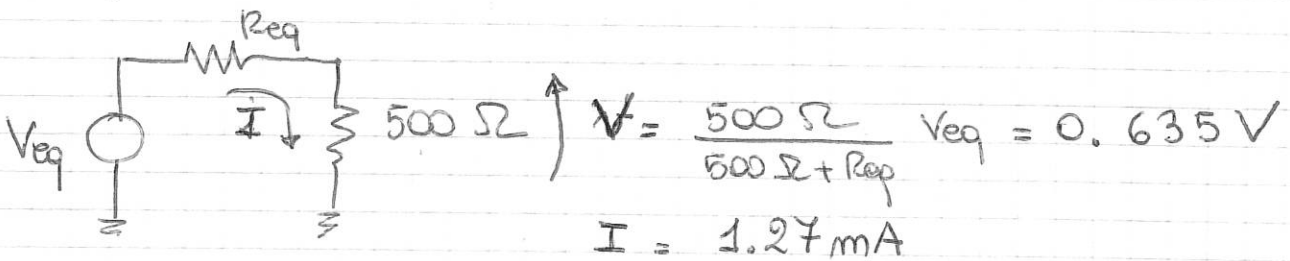 Req
Veq
I
500 Ω
V = 500 Ω / 500 Ω + Req Veq = 0.635 V
I = 1.27 mA